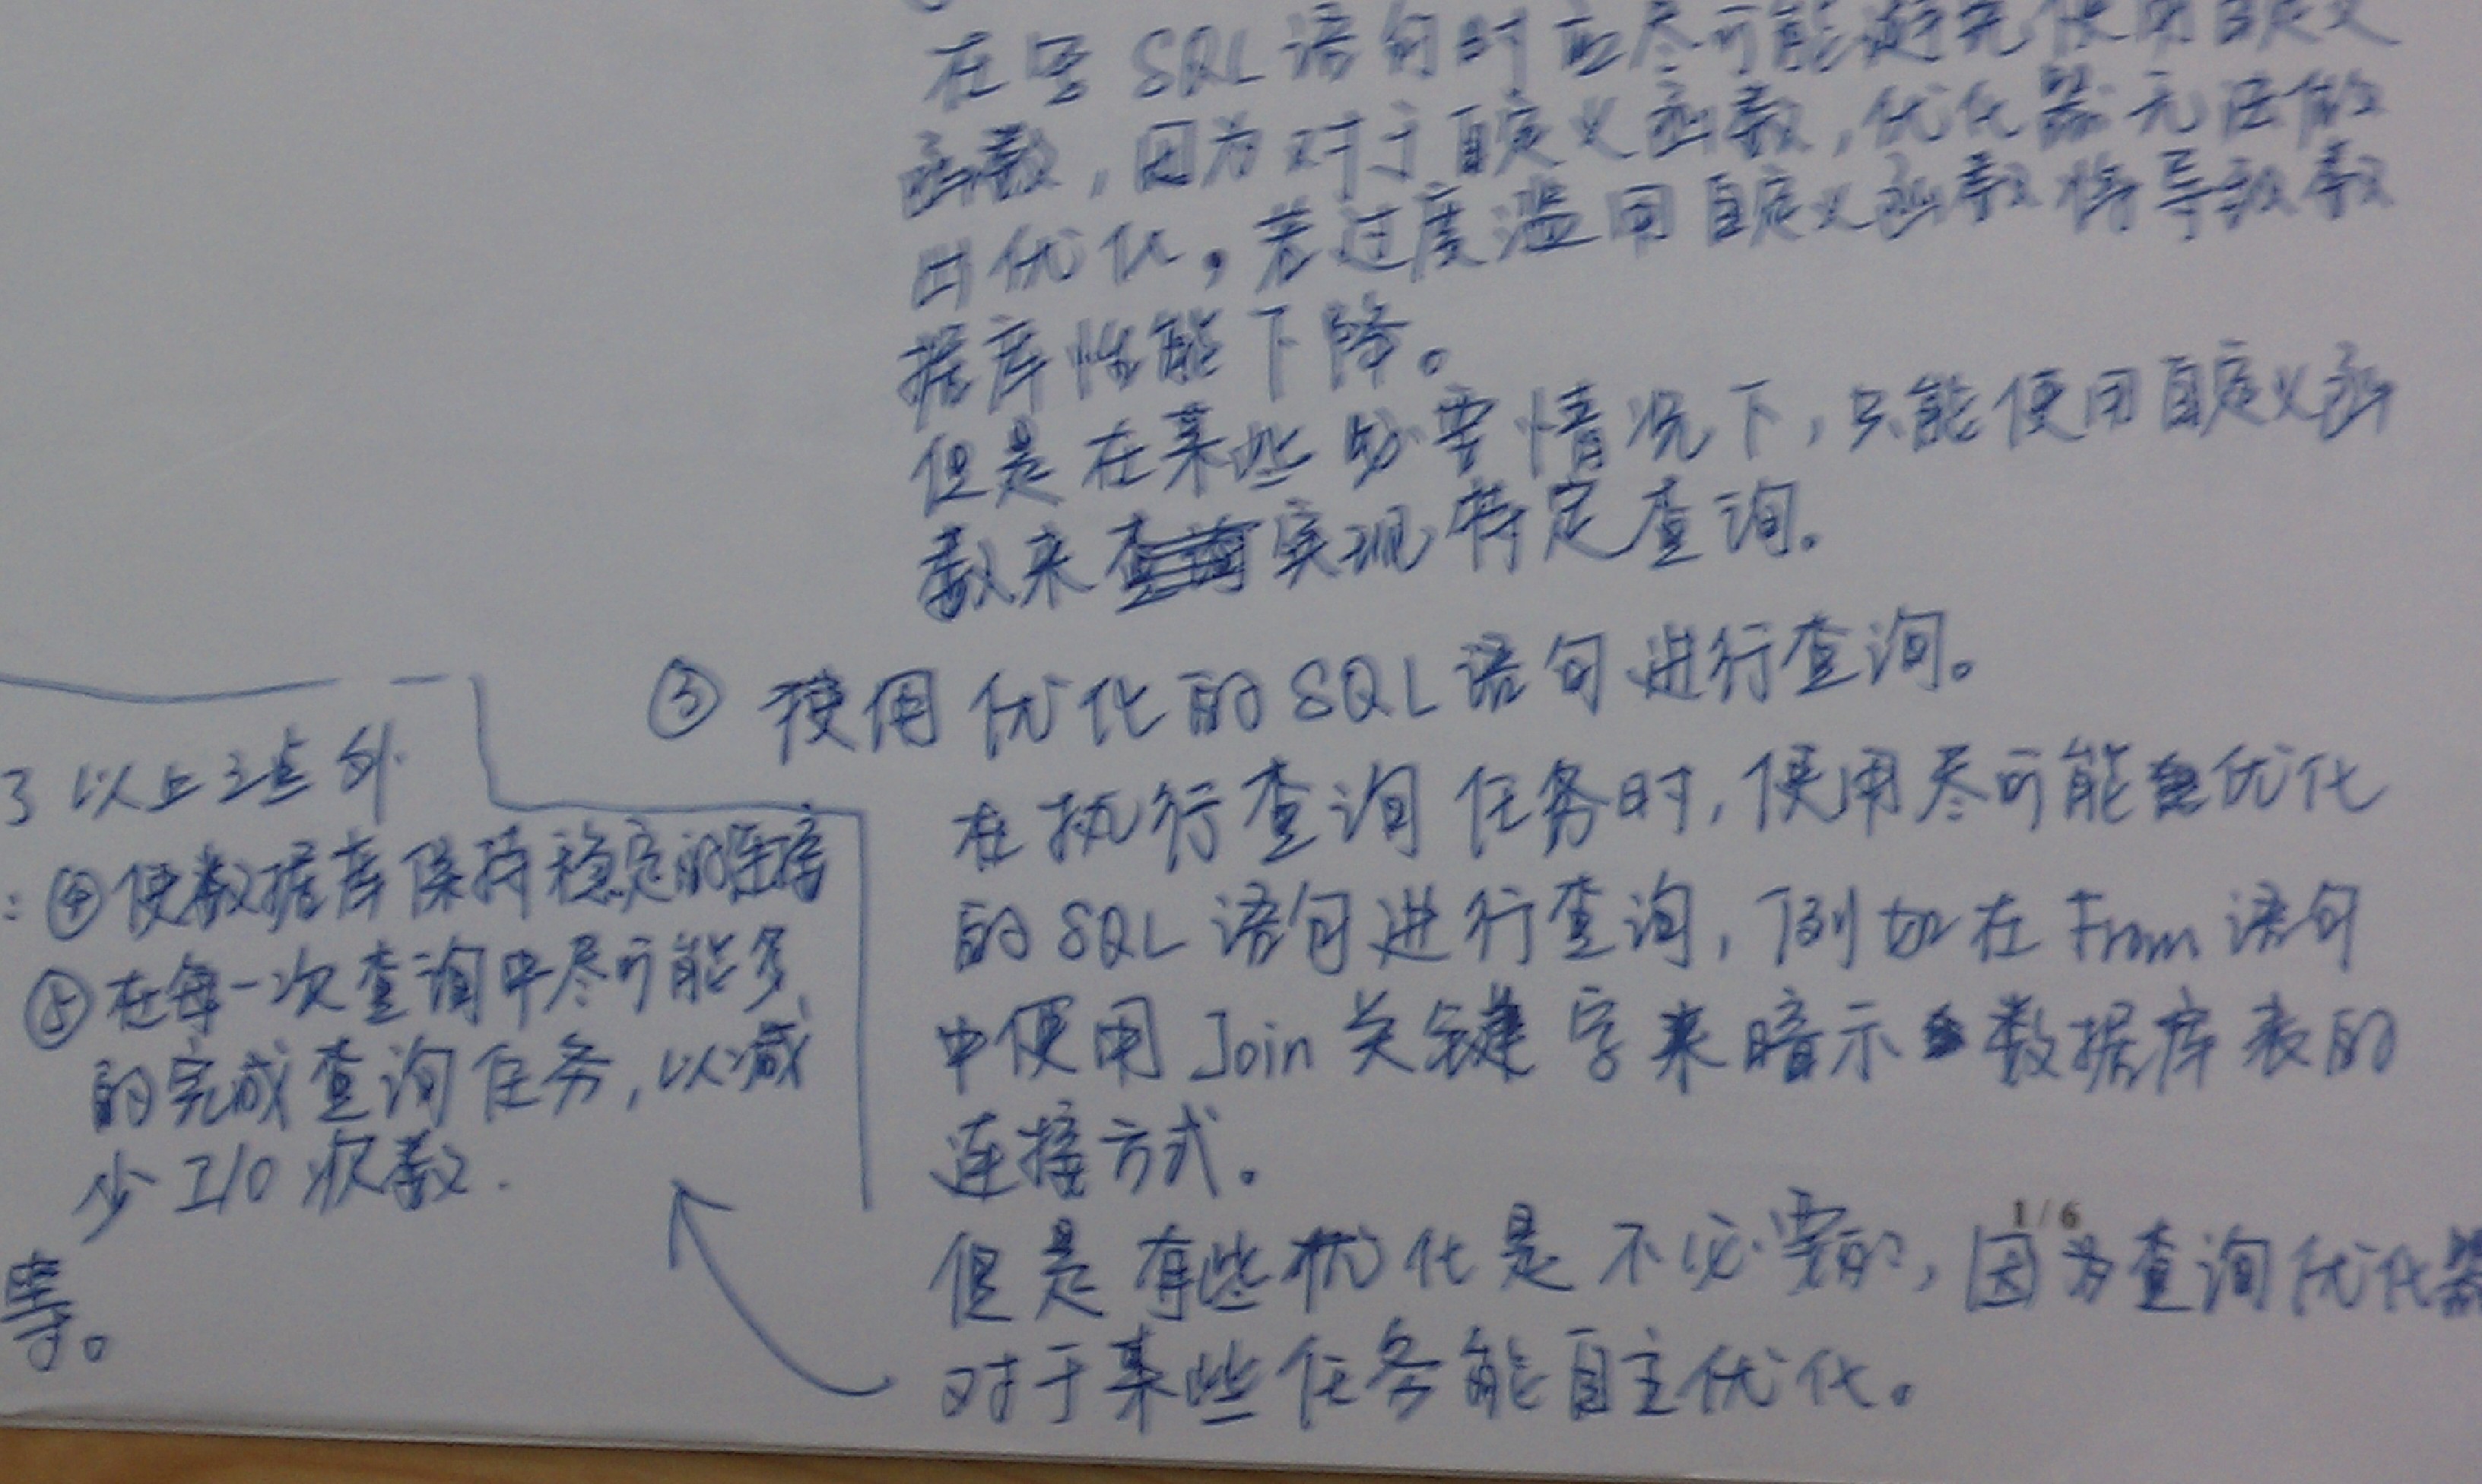 在写SQL语句时应尽可能避免使用自定义
函数，因为对于自定义函数，优化器无法做
出优化，若过度滥用自定义函数将导致数
据库性能下降。
但是在某些必要情况下，只能使用自定义函
数来实现特定查询。
③ 使用优化的SQL语句进行查询。
在执行查询任务时，使用尽可能优化
的SQL语句进行查询，例如在From语句
中使用Join关键字来暗示数据库表的
连接方式。
但是有些优化是不必要的，因为查询优化器
对于某些任务能自主优化。
1/6
了以上三点外
：④使数据库保持稳定的连接
⑤在每一次查询中尽可能多
的完成查询任务，以减
少I/O次数.
等。